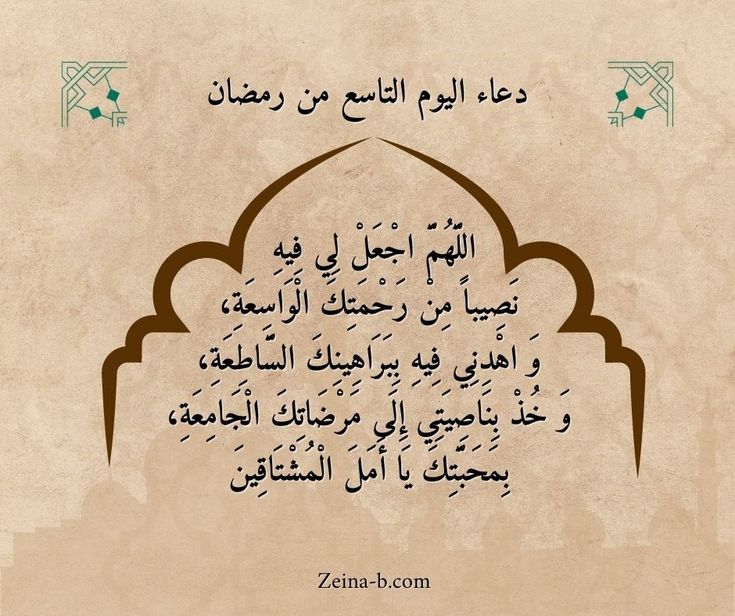 دعاء اليوم التاسع من رمضان
اللّهُمّ اجْعَلْ لِي فِيهِ
نَصِيباً مِنْ رَحْمَتِكَ الْوَاسِعَةِ،
وَ اهْدِنِي فِيهِ بِبَرَاهِينِكَ السَّاطِعَةِ،
وَ خُذْ بِنَاصِيَتِي إِلَى مَرْضَاتِكَ الْجَامِعَةِ،
بِمَحَبَّتِكَ يَا أَمَلَ الْمُشْتَاقِينَ
Zeina-b.com